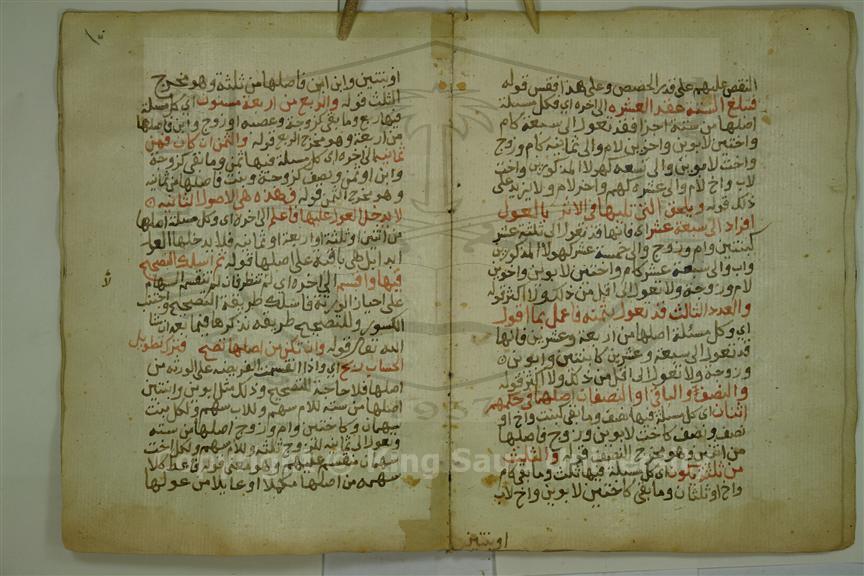 النقص عليهم على قدر الحصص وعلى هذا فقس قوله
فتبلغ الستة عقد العشره الى اخره اي وكل مسئلة
اصلها من ستة اجزا فقد تعول الى سبعة كام
واختين لابوين واخوين لام والى ثمانية كام وزوج
واخت لابوين والى تسعة كهولا المذكورين واخت
لاب واخ لام والى عشره كهم واخر لام ولا يزيد على
ذلك قوله وتلحق التي تليها في الاثر بالعول
افرادا الى سبعة عشر اي فانها قد تعول الى ثلثة عشر
كبنتين وام وزوج والى خمسة عشر كهولا المذكورين
واب والى سبعة عشر كام واختين لابوين واخوين
لام وزوجة ولا تعول الى اقل من ذلك ولا اكثر قوله
والعدد الثالث قد يعول بثمنه فاعمل بما اقول
اي وكل مسئلة اصلها من اربعة وعشرين فانها
قد تعول الى سبعة وعشرين كابنتين وابوين
وزوجة ولا تعول الى اقل من ذلك ولا اكثر قوله
والنصف والباقي او النصفان اصلهما في حكمهم
اثنان اي كل مسئلة فيها نصف وما بقي كبنت واخ او
نصف ونصف كاخت لابوين وزوج فاصلها
من اثنين وهو مخرج النصف قوله والثلث
من ثلثة يكون اي كل مسئلة فيها ثلث وما بقي كام
واخ او ثلثان وما بقي كاختين لابوين واخ لاب
او بنتين
او بنتين وابن ابن فاصلها من ثلثة وهو مخرج
الثلث قوله والربع من اربعة مسنون اي كل مسئلة
فيها ربع وما بقي كزوجة وعصبه او زوج وابن فاصلها
من اربعة وهو مخرج الربع قوله والثمن ان كان فمن
ثمانيه الى اخره اي كل مسئلة فيها ثمن وما بقي كزوجة
وابن او ثمن ونصف كزوجة وبنت فاصلها من ثمانيه
وهو مخرج الثمن قوله فهذه هي الاصول الثانيه
لا يدخل العول عليها فاعلم الى اخره اي وكل مسئلة اصلها
من اثنين او ثلثة او اربعة او ثمانيه فلا يدخلها العول
ابدا بل هي باقية على اصلها قوله ثم اسلك التصحيح
فيها واقسم الى اخره اي ثم تنظر فان لم تنقسم السهام
على احياز الورثة فاسلك طريقة التصحيح واجتنب
الكسور وللتصحيح طريقه نذكرها فيما بعد ان شا
الله تعالى قوله وان تكن من اصلها تصح فترك تطويل
الحساب ربح اي واذا انقسمت الفريضة على الورثه من
اصلها فلا حاجة للتصحيح وذلك مثل ابوين وابنتين
اصلها من ستة للام سهم وللاب سهم ولكل بنت
سهمان وكاختين وام وزوج اصلها من سته
وتعول الى ثمانيه للزوج ثلثة وللام سهم ولكل اخت
سهمان
سهمه من اصلها مكملا او عايلا من عولها